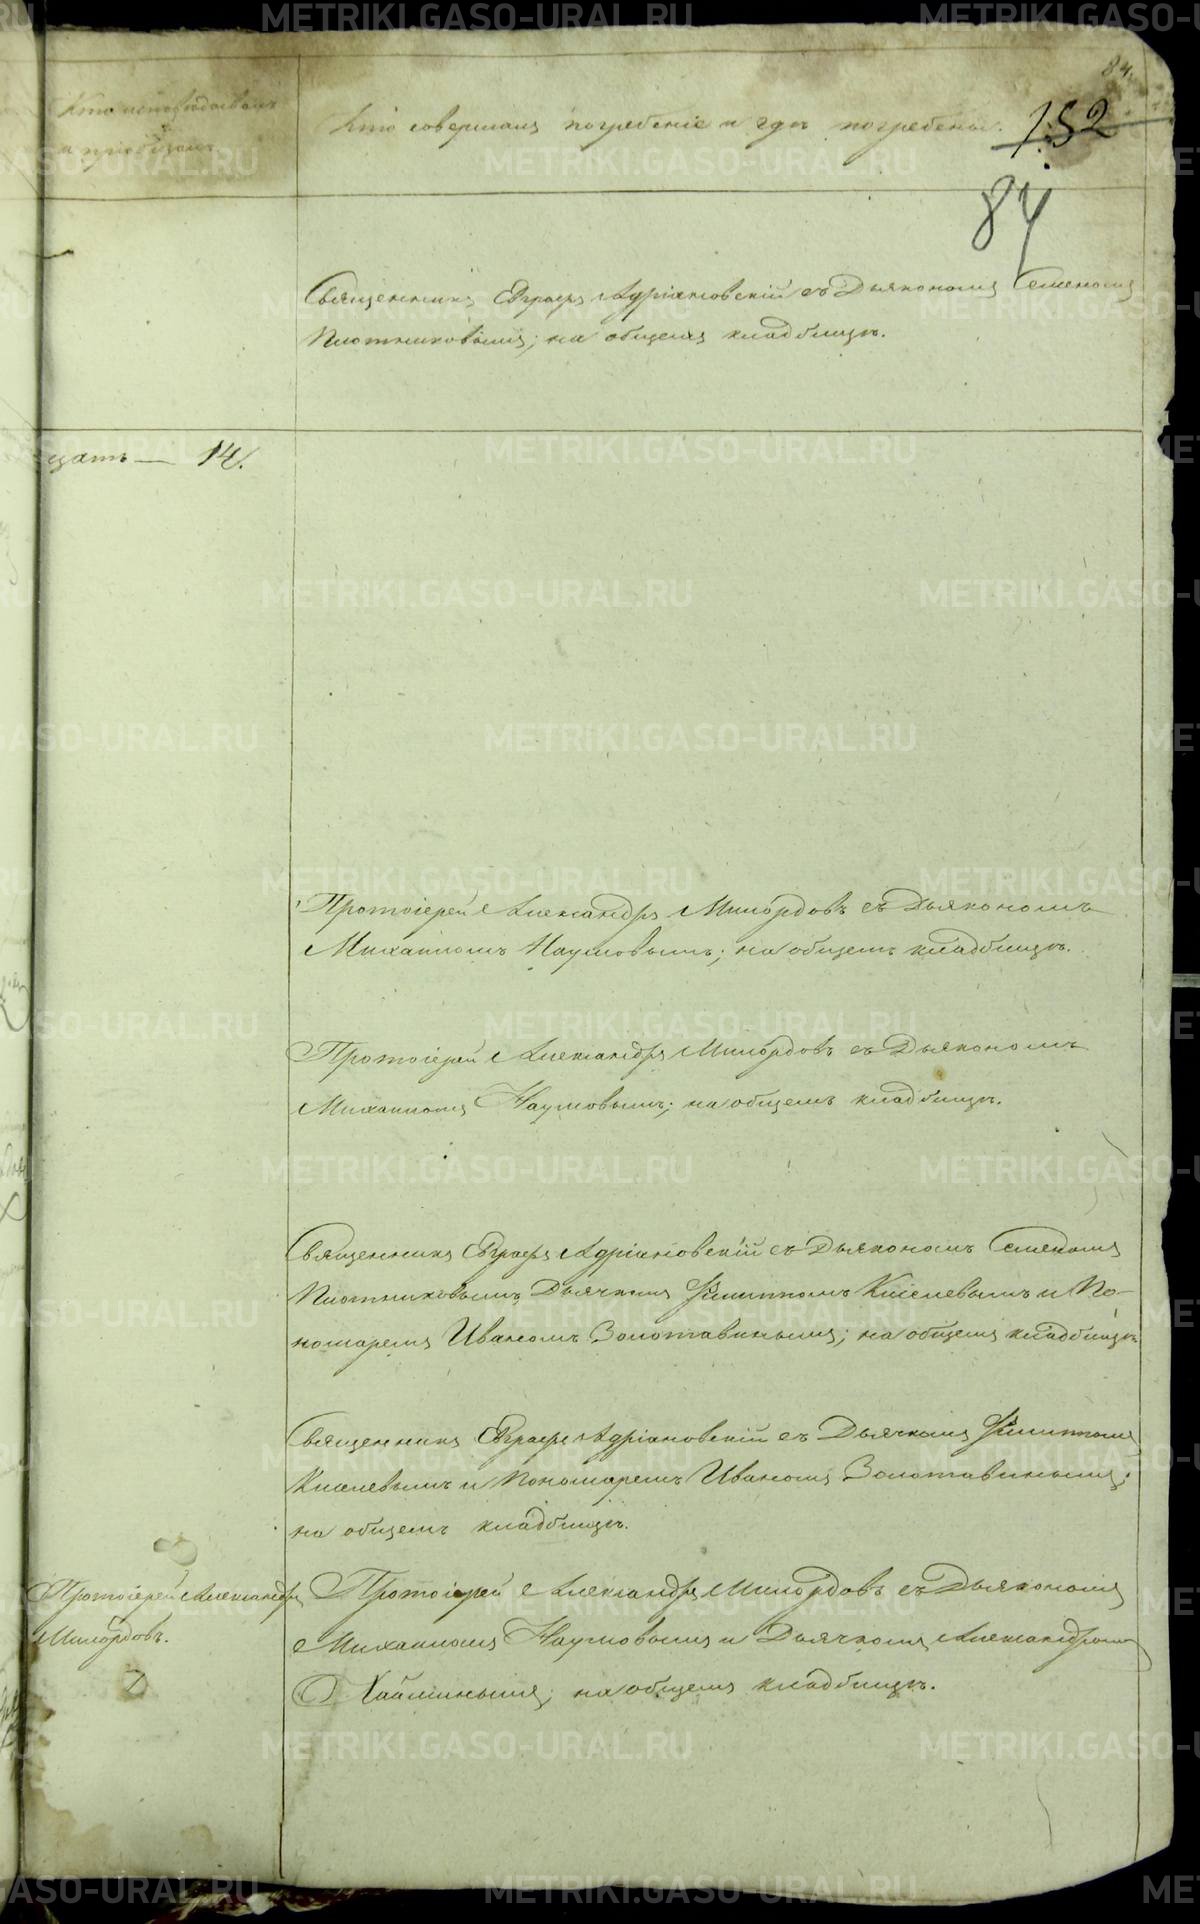 84.
Кто исповѣдывалъ
и пріобщалъ.
Кто совершалъ погребеніе и гдѣ погребены.
152
84
Священникъ Евграфъ Адріановскій съ Дьякономъ Семеномъ
Плотниковымъ; на общемъ кладбищѣ.
щать — 14.
Протоіерей Александръ Милордовъ съ Дьякономъ
Михаиломъ Наумовымъ; на общемъ кладбищѣ.
Протоіерей Александръ Милордовъ съ Дьякономъ
Михаиломъ Наумовымъ; на общемъ кладбищѣ.
Священникъ Евграфъ Адріановскій съ Дьякономъ Семеномъ
Плотниковымъ, Дьячкомъ Филиппомъ Киселевымъ и По-
номаремъ Иваномъ Золотавинымъ; на общемъ кладбищѣ
Священникъ Евграфъ Адріановскій съ Дьячкомъ Филиппомъ
Киселевымъ и Пономаремъ Иваномъ Золотавинымъ;
на общемъ кладбищѣ.
Протоіерей Александръ
Милордовъ.
Протоіерей Александръ Милордовъ съ Дьякономъ
Михаиломъ Наумовымъ и Дьячкомъ Александромъ
Хайминымъ; на общемъ кладбищѣ.
METRIKI.GASO-URAL.RU